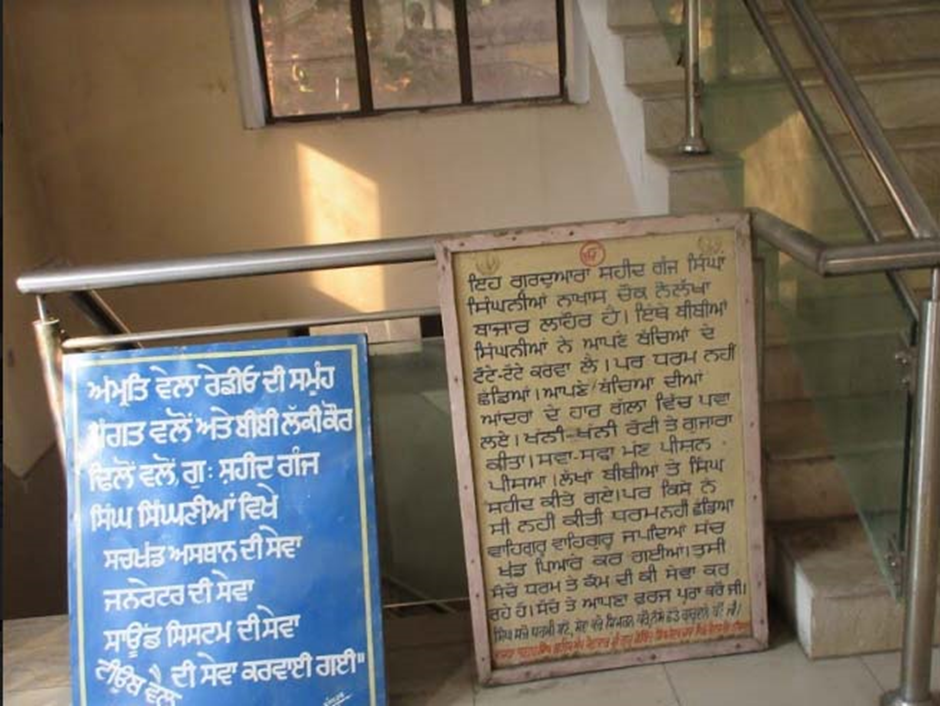 ਅੰਮ੍ਰਤਿ ਵੇਲਾ ਰੇਡੀਓ ਦੀ ਸਮੂੰਹ
ਸੰਗਤ ਵਲੋਂ ਅਤੇ ਬੀਬੀ ਲੱਕੀਕੌਰ
ਢਿਲੋਂ ਵਲੋਂ, ਗੁ: ਸ਼ਹੀਦ ਗੰਜ
ਸਿੰਘ ਸਿੰਘਣੀਆਂ ਵਿਖੇ
ਸਚਖੰਡ ਅਸਥਾਨ ਦੀ ਸੇਵਾ
ਜਨਰੇਟਰ ਦੀ ਸੇਵਾ
ਸਾਊਂਡ ਸਿਸਟਮ ਦੀ ਸੇਵਾ
ਟੀਊਬ ਵੈਲ ਦੀ ਸੇਵਾ ਕਰਵਾਈ ਗਈ"
ੴ
ਇਹ ਗੁਰਦੁਆਰਾ ਸ਼ਹੀਦ ਗੰਜ ਸਿੰਘਾਂ
ਸਿੰਘਨੀਆਂ ਨਾਖਾਸ ਚੌਕ ਨੌਲੱਖਾ
ਬਾਜਾਰ ਲਾਹੌਰ ਹੈ। ਇੱਥੇ ਬੀਬੀਆਂ
ਸਿੰਘਨੀਆਂ ਨੇ ਆਪਣੇ ਬੱਚਿਆਂ ਦੇ
ਟੋਟੇ-ਟੋਟੇ ਕਰਵਾ ਲੈ। ਪਰ ਧਰਮ ਨਹੀਂ
ਛੱਡਿਆ। ਆਪਣੇ ਬੱਚਿਆ ਦੀਆਂ
ਆਂਦਰਾਂ ਦੇ ਹਾਰ ਗੱਲਾ ਵਿੱਚ ਪਵਾ
ਲਏ। ਖੰਨੀ-ਖੰਨੀ ਰੋਟੀ ਤੇ ਗੁਜਾਰਾ
ਕੀਤਾ। ਸਵਾ-ਸਵਾ ਮੰਣ ਪੀਸਣ
ਪੀਸਆ। ਲੱਖਾਂ ਬੀਬੀਆਂ ਤੇ ਸਿੰਘ
ਸ਼ਹੀਦ ਕੀਤੇ ਗਏ। ਪਰ ਕਿਸੇ ਨੇ
ਸੀ ਨਹੀਂ ਕੀਤੀ ਧਰਮ ਨਹੀਂ ਛੱਡਿਆ
ਵਾਹਿਗੁਰੂ ਵਾਹਿਗੁਰੂ ਜਪਦਿਆਂ ਸੱਚ
ਖੰਡ ਪਿਆਰੇ ਕਰ ਗਈਆਂ। ਤੁਸੀ
ਸੋਚੋ ਧਰਮ ਤੇ ਕੌਮ ਦੀ ਕੀ ਸੇਵਾ ਕਰ
ਰਹੇ ਹੋ। ਸੋਚੋ ਤੇ ਆਪਣਾ ਫ਼ਰਜ ਪੂਰਾ ਕਰੋ ਜੀ।